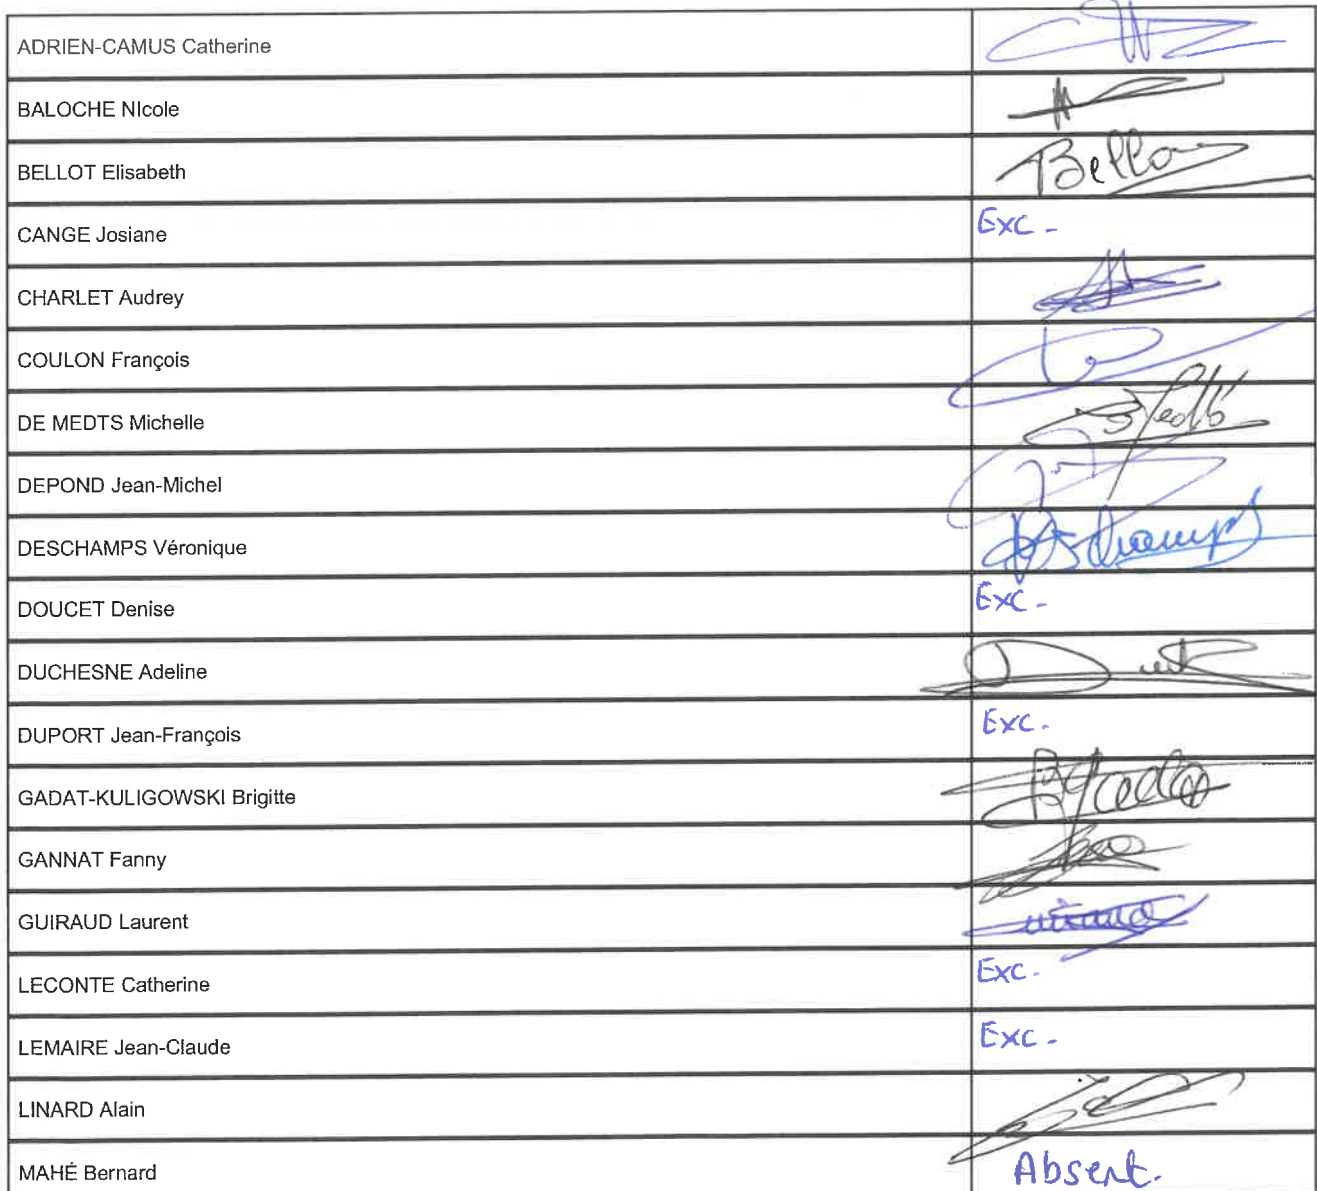 ADRIEN-CAMUS Catherine
BALOCHE NIcole
BELLOT Elisabeth Bellot
CANGE Josiane Exc -
CHARLET Audrey
COULON François
DE MEDTS Michelle
DEPOND Jean-Michel
DESCHAMPS Véronique Deschamps
DOUCET Denise Exc -
DUCHESNE Adeline
DUPORT Jean-François Exc.
GADAT-KULIGOWSKI Brigitte
GANNAT Fanny
GUIRAUD Laurent
LECONTE Catherine Exc.
LEMAIRE Jean-Claude Exc -
LINARD Alain
MAHÉ Bernard Absent.